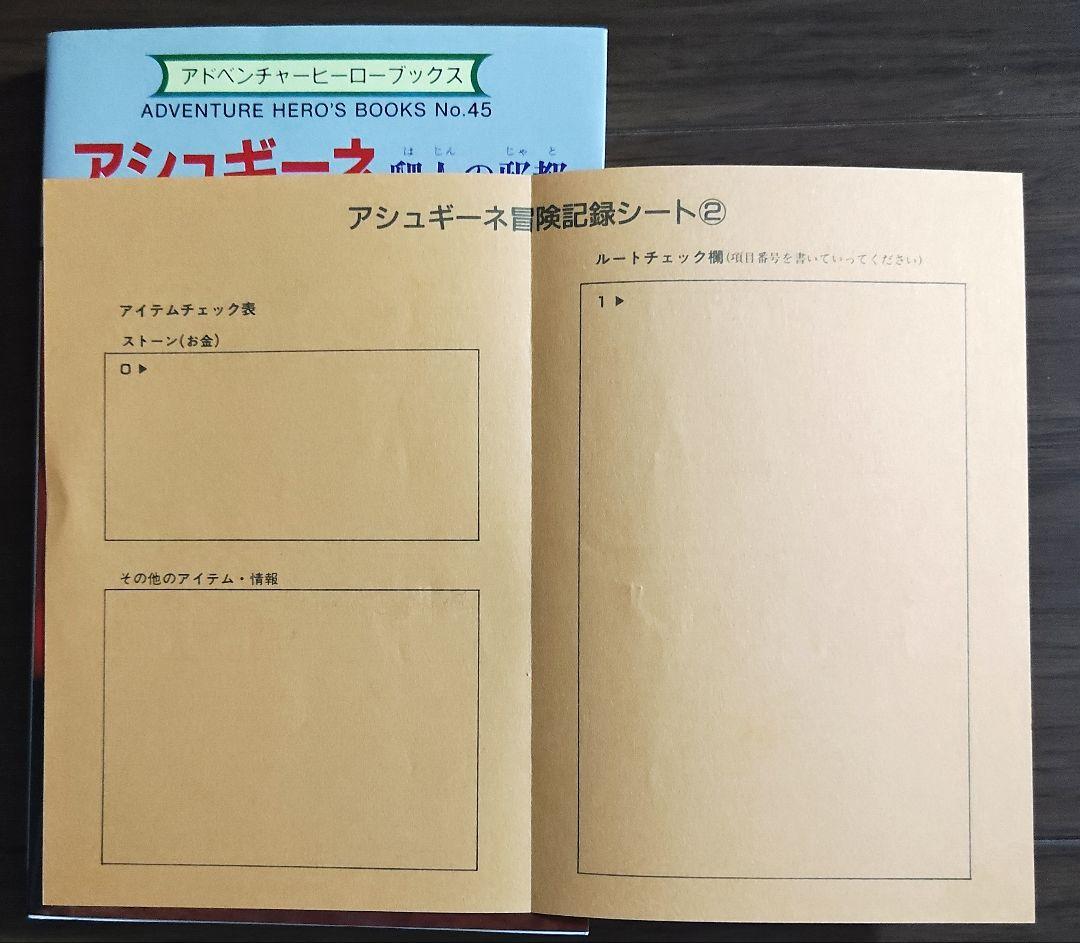 アドベンチャーヒーローブックス
ADVENTURE HERO'S BOOKS No.45
は じん じゃ と
アシュギーネ 人の邪都
アシュギーネ冒険記録シート②
ルートチェック欄(項目番号を書いていってください)
1 ▶
アイテムチェック表
ストーン(お金)
0 ▶
その他のアイテム・情報